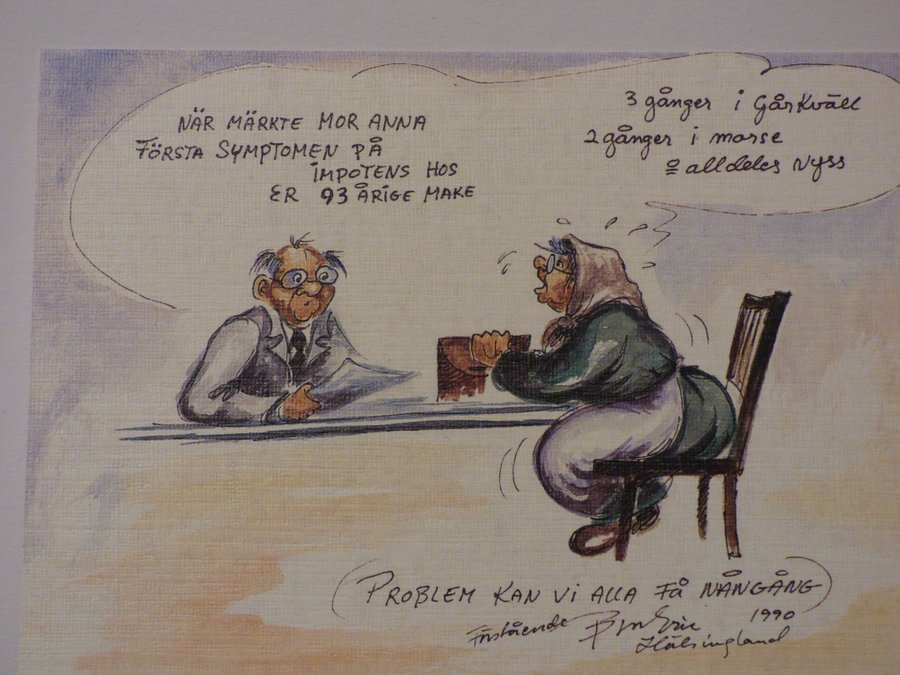 NÄR MÄRKTE MOR ANNA
FÖRSTA SYMPTOMEN PÅ
IMPOTENS HOS
ER 93 ÅRIGE MAKE
3 gånger i Går Kväll
2 gånger i morse
o alldeles Nyss
PROBLEM KAN VI ALLA FÅ NÅNGÅNG
Förstående
1990
Hälsingland